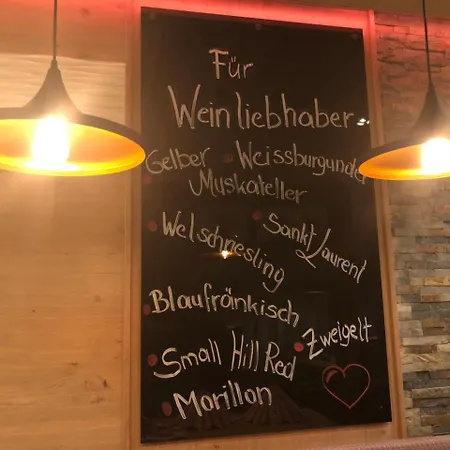 Für
Weinliebhaber
Gelber
Muskateller
Weissburgunder
Welschriesling
Sankt Laurent
Blaufränkisch
Zweigelt
Small Hill Red
Morillon